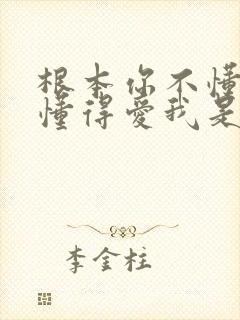 根本你不懂
懂得爱我是
李金柱